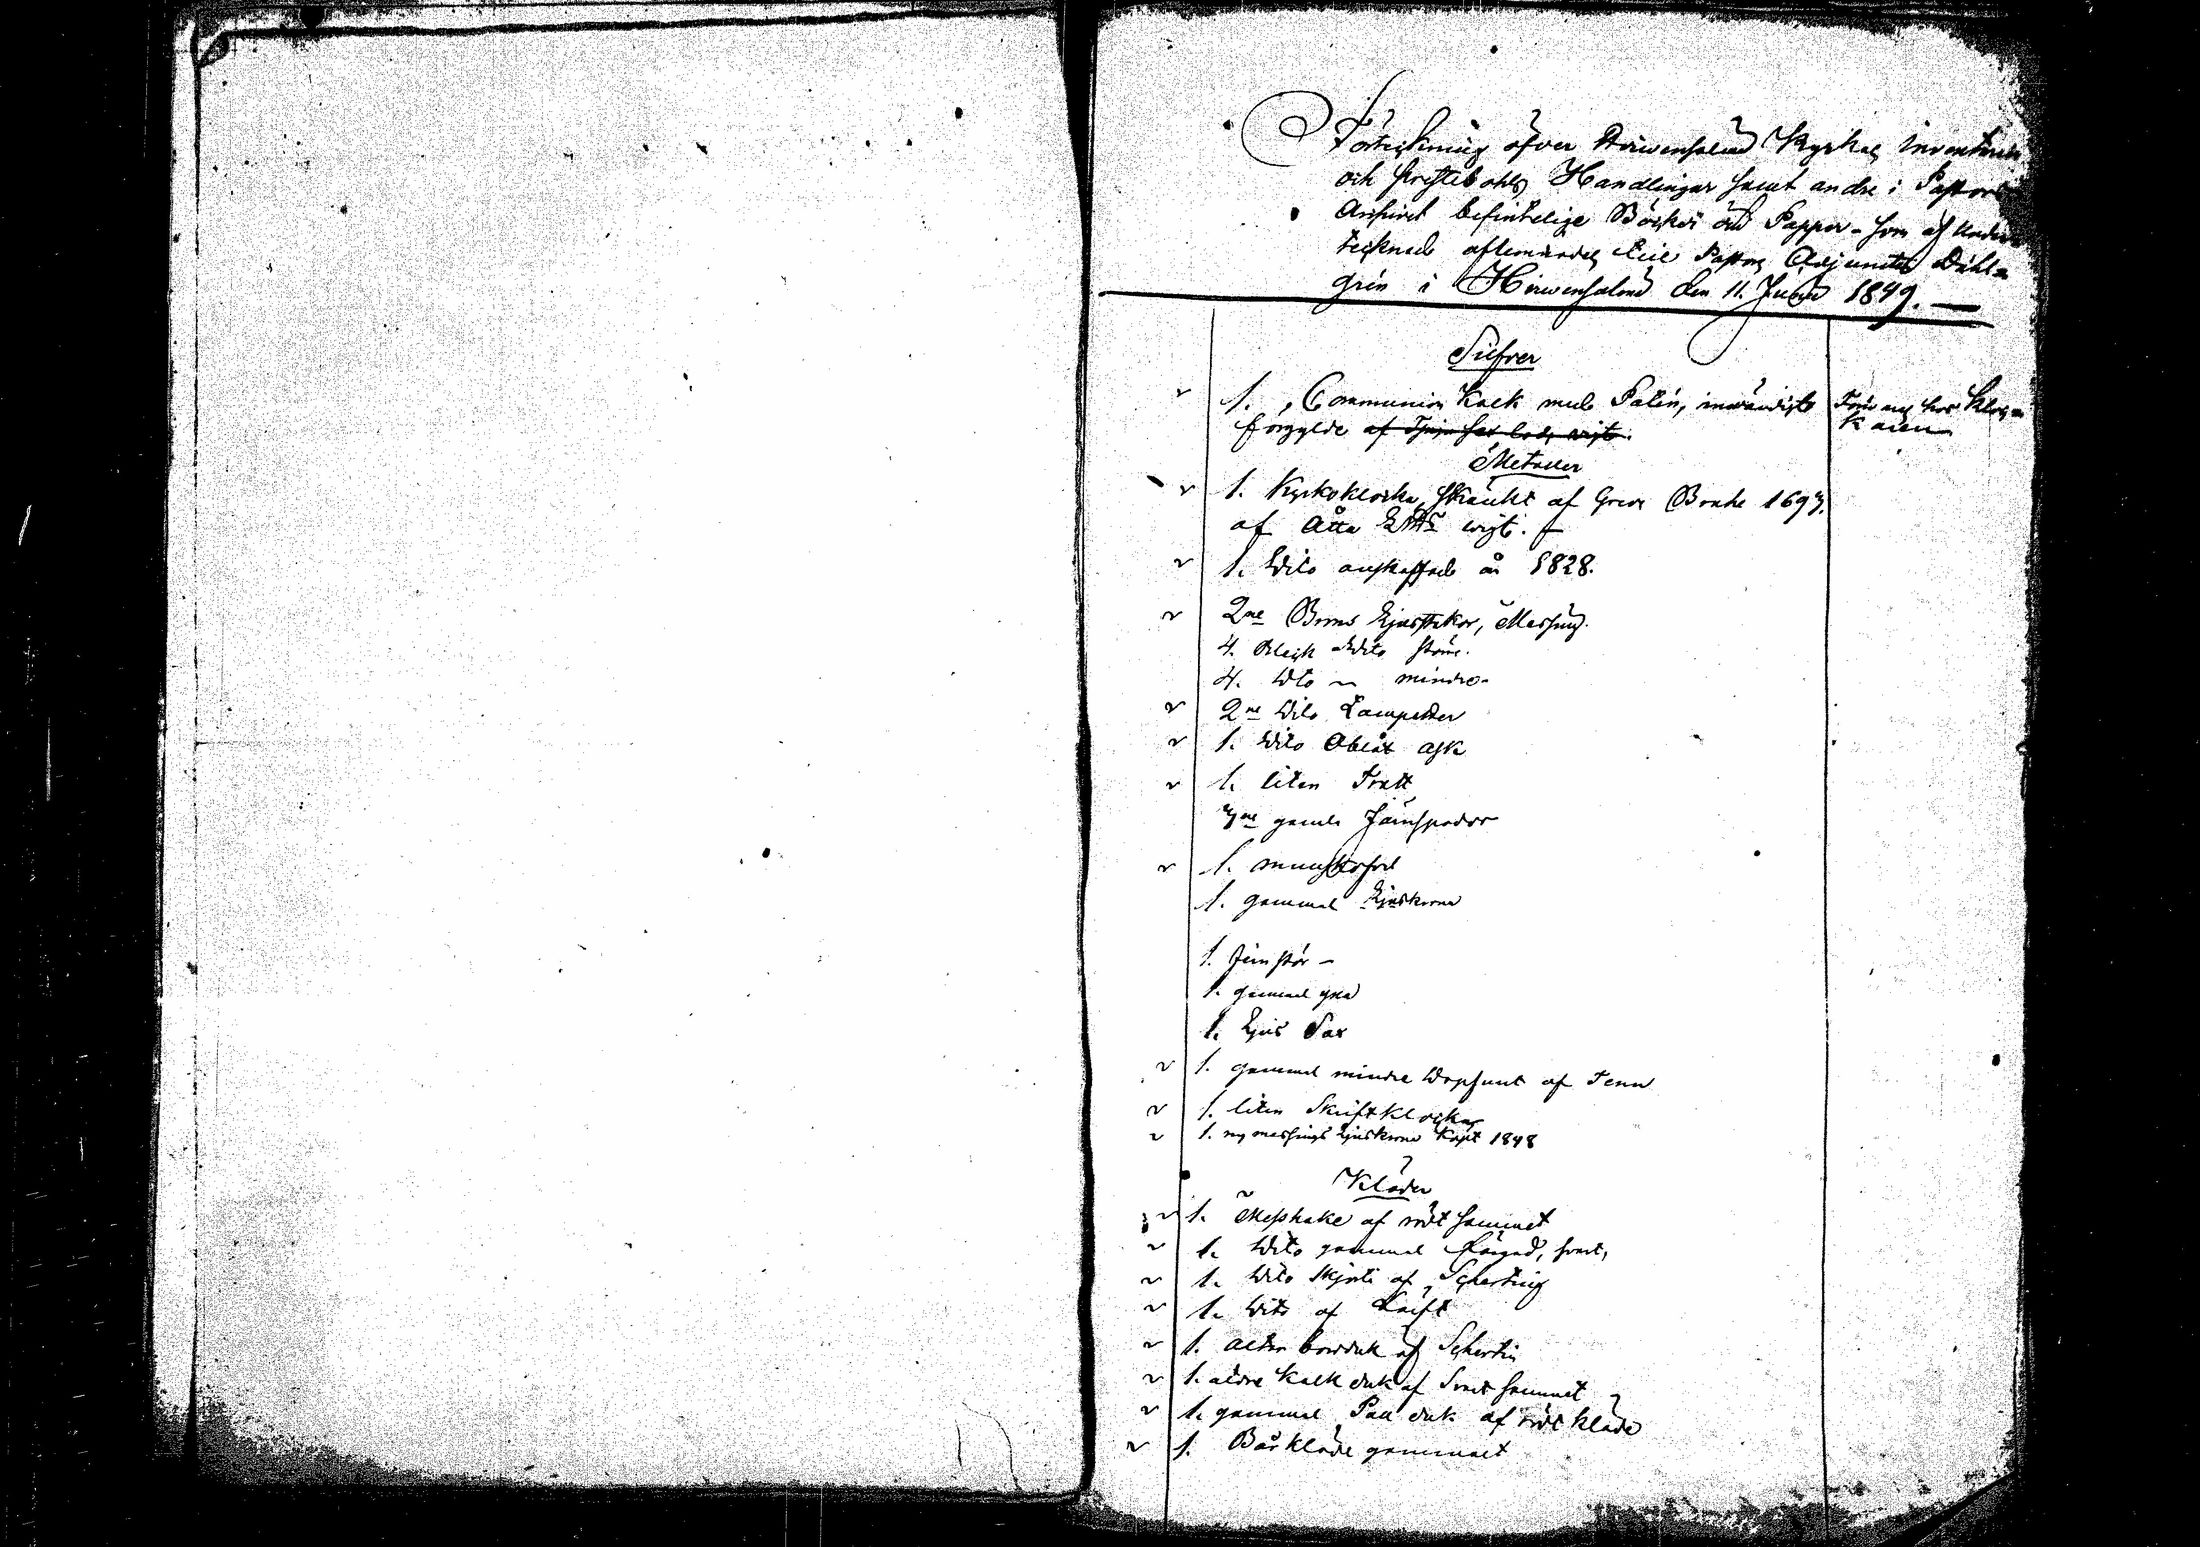 Förtekning öfver Hirvensalmi Kyrkas Inventarie
och Prestebohls Handlingar samt andre i Pastors
Archivet befintelige Böcker och Papper - som af under-
tecknad aflemnades till Pastors Adjuncten Dahl-
grén i Hirvensalmi den 11. Junii 1849.
Silfver
1. Communion Kalk med Patén, inwändigt
förgylde af
Förvaras hos Kloc-
karen
Metaller
1. Kyrkoklocka, Skänkt af Greve Brahe 1697.
af Åtta wigt.
1. Dito anskaffad år 1828.
2ne Ljusstakar, Messing.
4. Bleck Dito större.
4. Dto mindre
2ne Dito Lampetter
1. Dito Oblat ask
1. liten Tratt
gamla Järnspador
1.
1. gammal Ljuskrona
1. Järnstör -
1. gammal yxa
1. Ljus Sax
1. gammal mindre Dopfunt af Tenn
1. liten Skriftklocka
1. ny messings Ljuskrona köpt 1848
Kläder
1. Messhake af rödt sammet
1. Dito gammal färgad, svart,
1. Dito Skjorta af Scherting
1. Dito af Läift
1. Altar bordduk af Schertin
1. äldre Kalk duk af Svart sammet
1. gammal Pall duk af rödt kläde
1. Bårkläde gammalt